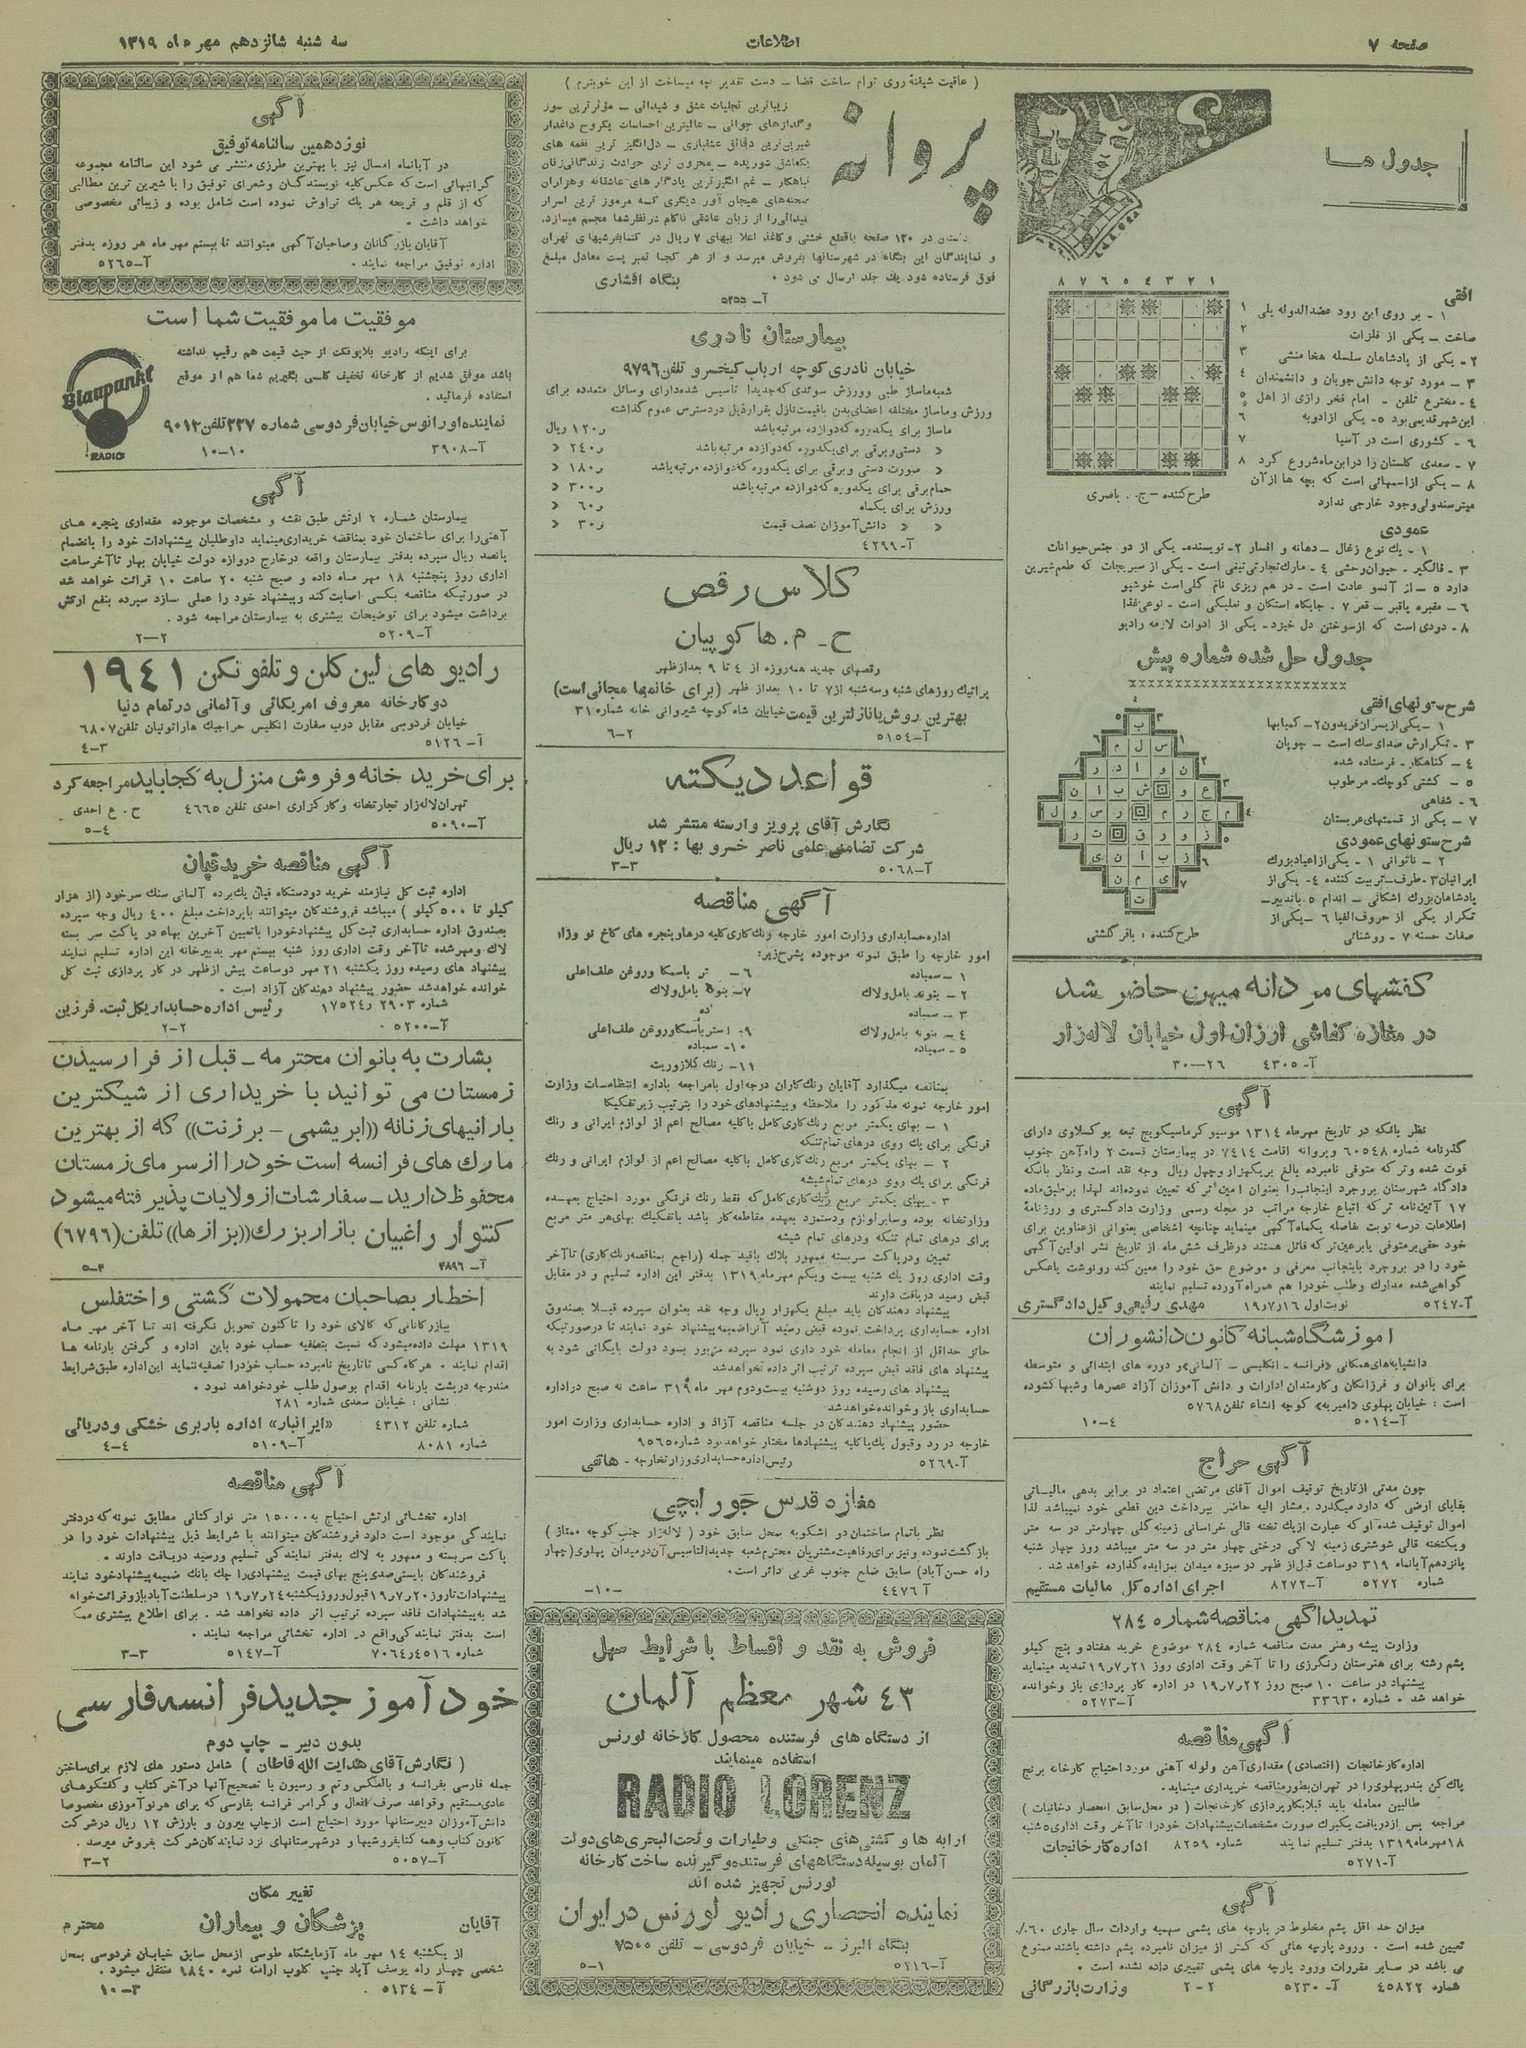 صفحه ۷
اطلاعات
سه شنبه شانزدهم مهر ماه ۱۳۱۹
جدول ها
۱ ۲ ۳ ٤ ٥ ٦ ۷ ۸
افقی
۱ - بر روی این رود عضدالدوله پلی
ساخت – یکی از فلزات
۲- یکی از پادشاهان سلسله هخامنشی
۳ – مورد توجه دانش‌جویان و دانشمندان
٤ - مخترع تلفن - امام فخر رازی از اهل
این شهر قدیمی بود ٥- یکی از ادویه
٦ - کشوری است در آسیا
۷ - سعدی گلستان را در این ماه شروع کرد
۸ - یکی از اسمهائی است که بچه ها از آن
میترسند ولی وجود خارجی ندارد
طرح کننده - ج . باصری
عمودی
۱ - یك نوع زغال – دهانه و افسار ۲- نویسنده. یکی از دو جنس حیوانات
۳ - قالگیر - حیوان وحشی ٤ - مارك تجارتی تیغی است - یکی از سبزیجات که طعم شیرین
دارد ٥ – از آنسو عادت است - در هم ریزی نام گلی است خوشبو
٦ – مقبره پاقبر – قعر ۷ . جایگاه استکان و نعلبکی است - نوعی غذا
۸ - دودی است که از سوختن دل خیزد - یکی از ادوات لازمه رادیو
جدول حل شده شماره پیش
شرح ستونهای افقی
۱ – یکی از پسران فریدون ۲- کمیابها
۳ - تکرارش صدای سك است – چوپان
٤ – گناهکار - فرستاده شده
٥ – کشتی کوچك- مرطوب
٦ - شفاهی
۷ – یکی از قسمتهای عربستان
شرح ستونهای عمودی
۲ – ناتوانی ۱ - یکی از اعیاد بزرك
ایرانیان ۳ - طرف – تربیت کننده ٤ - یکی از
پادشاهان بزرك اشکانی – اندام ٥
تکرار یکی از حروف الفبا ٦ – یکی از
صفات حسنه ۷ - روشنائی
طرح کننده : باقر گلشنی
کفشهای مردانه میهن حاضر شد
در مغازه کفاشی ارزان اول خیابان لاله‌زار
آ- ٤۳۰٥ ۲٦—۳۰
آگهی
نظر باینکه در تاریخ مهرماه ۱۳۱٤ موسیو کرماسیکویچ تبعه یوگسلاوی دارای
گذرنامه شماره ٦۰٥٤۸ و پروانه اقامت ۷٤۱٤ در بیمارستان قسمت ۲ راه‌آهن جنوب
فوت شده و ترکه متوفی نامبرده بالغ بر یکهزار و چهل ریال وجه نقد است و نظر باینکه
دادگاه شهرستان بروجرد اینجانب را بعنوان امین ترکه تعیین نموده‌اند لهذا بر طبق ماده
۱۷ آئین‌نامه ترکه اتباع خارجه مراتب در مجله رسمی وزارت دادگستری و روزنامهٔ
اطلاعات در سه نوبت بفاصله یکماه آگهی مینماید چنانچه اشخاصی بعنوانی از عناوین برای
خود حقی بر متوفی یا بر عین ترکه قائل هستند در ظرف شش ماه از تاریخ نشر اولین آگهی
خود را در بروجرد باینجانب معرفی و موضوع حق خود را معین کند رونوشت یا عکس
گواهی شده مدارك و طلب خود را هم همراه آورده تسلیم نمایند
آ-٥۲٤۷ نوبت اول ۱۹٫۷٫۱٦ مهدی رفیعی وکیل دادگستری
آموزشگاه شبانه کانون دانشوران
دانشپایه‌های همگانی «فرانسه - انگلیسی - آلمانی» و دوره های ابتدائی و متوسطه
برای بانوان و فرزانگان و کارمندان ادارات و دانش آموزان آزاد عصرها و شبها گشوده
است : خیابان پهلوی «امیریه» کوچه انشاء تلفن ٥۷٦۸
آ-٥۰۱٤ ٤-۱۰
آگهی حراج
چون مدتی از تاریخ توقیف اموال آقای مرتضی اعتماد در برابر بدهی مالیاتی
بقایای ارضی که دارد میگذرد، مشار الیه حاضر بپرداخت دین قطعی خود نمیباشد لذا
اموال توقیف شده او که عبارت از یك تخته قالی خراسانی زمینه گلی چهار متر در سه متر
و یکتخته قالی شوشتری زمینه لاکی درختی چهار متر در سه متر میباشد روز چهار شنبه
پانزدهم آبانماه ۳۱۹ دو ساعت قبل از ظهر در سبزه میدان بمزایده گذارده خواهد شد.
شماره ٥۲۷۲ آ-۸۲۷۲ اجرای اداره کل مالیات مستقیم
تمدید آگهی مناقصه شماره ۲۸٤
وزارت پیشه و هنر مدت مناقصه شماره ۲۸٤ موضوع خرید هفتاد و پنج کیلو
پشم رشته برای هنرستان رنگرزی را تا آخر وقت اداری روز ۱۹٫۷٫۲۱ تمدید مینماید
پیشنهاد در ساعت ۱۰ صبح روز ۱۹٫۷٫۲۲ در اداره کار پردازی باز و خوانده
خواهد شد . شماره ۳۳٦۳۰ آ-٥۲۷۳
آگهی مناقصه
اداره کارخانجات (اقتصادی) مقداری آهن و لوله آهنی مورد احتیاج کارخانه برنج
پاك کن بندر پهلوی را در تهران بطور مناقصه خریداری مینماید.
طالبین معامله باید قبلا بکار پردازی کارخانجات ( در محل سابق انحصار دخانیات )
مراجعه پس از دریافت یکبرك صورت مشخصات پیشنهادات خود را تا آخر وقت اداری ٥ شنبه
۱۸ مهر ماه ۱۳۱۹ بدفتر تسلیم نمایند شماره ۸۲٥۹ اداره کارخانجات
آ-٥۲۷۱
آگهی
میزان حد اقل پشم مخلوط در پارچه های پشمی سهمیه واردات سال جاری ٦۰٪
تعیین شده است . ورود پارچه هائی که کمتر از میزان نامبرده پشم داشته باشند ممنوع
می باشد در سایر مقررات ورود پارچه های پشمی تغییری داده نشده است .
شماره ٤٥۸۲۲ آ- ٥۲۳۰ ۲-۲ وزارت بازرگانی
( عاقبت شیفتهٔ روی توام ساخت قضا – دست تقدیر چه میساخت از این خوبترم )
پروانه
زیباترین تجلیات عشق و شیدائی – مؤثرترین سوز
و گدازهای جوانی – عالیترین احساسات یکروح داغدار
شیرین‌ترین دقائق عشقبازی – دل‌انگیز ترین نغمه های
یکعاشق شوریده – محزون ترین حوادث زندگانی زنان
تباهکار – غم انگیزترین یادگار های عاشقانه و هزاران
صحنه‌های هیجان آور دیگری که مرموز ترین اسرار
شیدائی را از زبان عاشقی ناکام در نظرها مجسم میسازد.
در ۱۲۰ صفحه باقطع خشتی و کاغذ اعلا ببهای ۷ ریال در کتابفرشیهای تهران
و نمایندگان این بنگاه در شهرستانها بفروش میرسد و از هر کجا تمبر پست معادل مبلغ
فوق فرستاده شود یك جلد ارسال می شود . بنگاه افشاری
آ- ٥۲٥٥
بیمارستان نادری
خیابان نادری کوچه ارباب کیخسرو تلفن ۹۷۹٦
شعبه ماساژ طبی و ورزش سوئدی که جدیدا تاسیس شده دارای وسائل متعدده برای
ورزش و ماساژ مختلفه اعضای بدن با قیمت نازل بقرار ذیل در دسترس عموم گذاشته
ماساژ برای یکدوره که دوازده مرتبه باشد ۱۲۰ر ریال
« دستی و برقی برای یکدوره که دوازده مرتبه باشد ۲٤۰ر «
« صورت دستی و برقی برای یکدوره که دوازده مرتبه باشد ۱۸۰ر «
حمام برقی برای یکدوره که دوازده مرتبه باشد ۳۰۰ر «
ورزش برای یکماه ٦۰ر «
« « دانش آموزان نصف قیمت ۳۰ر «
آ-٤۲۹۹
کلاس رقص
ح - م . هاکوپیان
رقصهای جدید همه روزه از ٤ تا ۹ بعد از ظهر
پراتیك روزهای شنبه و سه شنبه از ۷ تا ۱۰ بعد از ظهر (برای خانمها مجانی است)
بهترین روش با نازلترین قیمت خیابان شاه کوچه شیروانی خانه شماره ۳۱
آ-٥۱٥٤ ۲-٦
قواعد دیکته
نگارش آقای پرویز وارسته منتشر شد
شرکت تضامنی علمی ناصر خسرو بها : ۱۲ ریال
آ-٥۰٦۸ ۳-۳
آگهی مناقصه
اداره حسابداری وزارت امور خارجه رنك کاری کلیه درها و پنجره های کاخ نو وزارت
امور خارجه را طبق نمونه موجوده بشرح زیر:
۱ – سمباده
۲ – بتونه بامل ولاك
۳ – سمباده
٤ – بتونه بامل ولاك
٥ – سمباده
٦ – تر باسکا وروغن علف اعلی
۷ – بتونه بامل ولاك
۹- استر باسکا وروغن علف اعلی
۱۰- سمباده
۱۱ – رنك کلازوریت
بمناقصه میگذارد آقایان رنك کاران درجه اول بامراجعه باداره انتظامات وزارت
امور خارجه نمونه مذکور را ملاحظه و پیشنهادهای خود را بترتیب زیر تفکیکا
۱ – بهای یکمتر مربع رنك کاری کامل با کلیه مصالح اعم از لوازم ایرانی و رنك
فرنگی برای یك روی درهای تمام تنکه
۲ – بهای یکمتر مربع رنك کاری کامل با کلیه مصالح اعم از لوازم ایرانی و رنك
فرنگی برای یك روی درهای تمام شیشه
۳ - بهای یکمتر مربع رنك کاری کامل که فقط رنك فرنگی مورد احتیاج بعهده
وزارتخانه بوده و سایر لوازم و دستمزد بعهده مقاطعه کار باشد با تفکیك بهای هر متر مربع
برای درهای تمام تنکه و درهای تمام شیشه
تعیین و در پاکت سربسته ممهور بلاك باقید جمله (راجع بمناقصه رنك کاری) تا آخر
وقت اداری روز یك شنبه بیست و یکم مهرماه ۱۳۱۹ بدفتر این اداره تسلیم و در مقابل
قبض رسید دریافت دارند
پیشنهاد دهندگان باید مبلغ یکهزار ریال وجه نقد بعنوان سپرده قبلا بصندوق
اداره حسابداری پرداخت نموده قبض رسید آنرا ضمیمه پیشنهاد خود نمایند تا در صورتیکه
حائز حداقل از انجام معامله خود داری نمود سپرده مزبور بسود دولت بایگانی شود به
پیشنهاد های فاقد قبض سپرده ترتیب اثر داده نخواهد شد
پیشنهاد های رسیده روز دوشنبه بیست و دوم مهر ماه ۳۱۹ ساعت نه صبح در اداره
حسابداری باز و خوانده خواهد شد
حضور پیشنهاد دهندگان در جلسه مناقصه آزاد و اداره حسابداری وزارت امور
خارجه در رد و قبول یك یا کلیه پیشنهادها مختار خواهد بود شماره ۹٥٦٥
آ-٥۲٦۹ رئیس اداره حسابداری وزارتخارجه - هاتفی
مغازه قدس جورابچی
نظر باتمام ساختمان دو اشکوبه بمحل سابق خود ( لاله‌زار جنب کوچه ممتاز )
بازگشت نموده و نیز برای رفاهیت مشتریان محترم شعبه جدید التاسیس آن در میدان پهلوی (چهار
راه حسن آباد) سابق ضلع جنوب غربی دائر است.
آ ٤٤۷٦ -۱۰-
فروش به نقد و اقساط با شرایط سهل
٤۳ شهر معظم آلمان
از دستگاه های فرستنده محصول کارخانه لورنس
استفاده مینمایند
RADIO LORENZ
ارابه ها و کشتی های جنگی و طیارات و تحت البحری های دولت
آلمان بوسیله دستگاههای فرستنده و گیرنده ساخت کارخانه
لورنس تجهیز شده اند
نماینده انحصاری رادیو لورنس در ایران
بنگاه البرز – خیابان فردوسی – تلفن ۷٥۰۰
آ-٥۲۱٦ ۱-٥
آگهی
نوزدهمین سالنامه توفیق
در آبانماه امسال نیز با بهترین طرزی منتشر می شود این سالنامه مجموعه
گرانبهائی است که عکس کلیه نویسندگان و شعرای توفیق را با شیرین ترین مطالبی
که از قلم و قریحه هر یك تراوش نموده است شامل بوده و زیبائی مخصوصی
خواهد داشت .
آقایان بازرگانان و صاحبان آگهی میتوانند تا بیستم مهر ماه هر روزه بدفتر
اداره توفیق مراجعه نمایند . آ-٥۲٦٥
موفقیت ما موفقیت شما است
برای اینکه رادیو بلاپونکت از حیث قیمت هم رقیب نداشته
باشد موفق شدیم از کارخانه تخفیف کلی بگیریم شما هم از موقع
استفاده فرمائید .
Blaupunkt
RADIO
نماینده اورانوس خیابان فردوسی شماره ۲۲۷ تلفن ۹۰۱۲
آ-۳۹۰۸ ۱۰-۱۰
آگهی
بیمارستان شماره ۲ ارتش طبق نقشه و مشخصات موجوده مقداری پنجره های
آهنی را برای ساختمان خود بمناقصه خریداری مینماید داوطلبان پیشنهادات خود را بانضمام
پانصد ریال سپرده بدفتر بیمارستان واقعه در خارج دروازه دولت خیابان بهار تا آخر ساعت
اداری روز پنجشنبه ۱۸ مهر ماه داده و صبح شنبه ۲۰ ساعت ۱۰ قرائت خواهد شد
در صورتیکه مناقصه بکسی اصابت کند و پیشنهاد خود را عملی نسازد سپرده بنفع ارتش
برداشت میشود برای توضیحات بیشتری به بیمارستان مراجعه شود .
آ-٥۲۰۹ ۲-۲
رادیو های لین کلن و تلفونکن ۱۹٤۱
دو کارخانه معروف امریکائی و آلمانی در تمام دنیا
خیابان فردوسی مقابل درب سفارت انگلیس حراجیك هاراتونیان تلفن ٦۸۰۷
آ- ٥۱۲٦ ۳-٤
برای خرید خانه و فروش منزل به کجا باید مراجعه کرد
تهران لاله‌زار تجارتخانه و کارگزاری احدی تلفن ٤٦٦٥ ح . ع احدی
آ-٥۰۹۰ ٤-٥
آگهی مناقصه خرید قپان
اداره ثبت کل نیازمند خرید دو دستگاه قپان یك برده آلمانی سنك سرخود (از هزار
کیلو تا ٥۰۰ کیلو ) میباشد فروشندگان میتوانند با پرداخت مبلغ ٤۰۰ ریال وجه سپرده
بصندوق اداره حسابداری ثبت کل پیشنهاد خود را با تعیین آخرین بهاء در پاکت سر بسته
لاك و مهر شده تا آخر وقت اداری روز شنبه بیستم مهر بدبیرخانه این اداره تسلیم نمایند
پیشنهاد های رسیده روز یکشنبه ۲۱ مهر دو ساعت پیش از ظهر در کار پردازی ثبت کل
خوانده خواهد شد حضور پیشنهاد دهندگان آزاد است .
شماره ۲۹۰۳ر۱۷٥۲٤ رئیس اداره حسابداری کل ثبت. فرزین
آ-٥۲۰۰ ۲-۲
بشارت به بانوان محترمه – قبل از فرا رسیدن
زمستان می توانید با خریداری از شیکترین
بارانیهای زنانه ((ابریشمی – برزنت)) که از بهترین
مارك های فرانسه است خود را از سرمای زمستان
محفوظ دارید – سفارشات از ولایات پذیرفته میشود
کنتوار راغبیان بازار بزرك ((بزازها)) تلفن (٦۷۹٦)
آ- ۴۸۹٦ ۴-٥
اخطار بصاحبان محمولات کشتی و اختفلس
ببازرگانانی که کالای خود را تاکنون تحویل نگرفته اند تا آخر مهر ماه
۱۳۱۹ مهلت داده میشود که نسبت بتصفیه حساب خود باین اداره و گرفتن بارنامه ها
اقدام نمایند . هرگاه کسی تا تاریخ نامبرده حساب خود را تصفیه ننماید این اداره طبق شرایط
مندرجه در پشت بارنامه اقدام بوصول طلب خود خواهد نمود .
نشانی : خیابان سعدی شماره ۲۸۱
شماره تلفن ٤۳۱۲ «ایرانبار» اداره باربری خشکی و دریائی
شماره ۸۰۸۱ آ-٥۱۰۹ ٤-٤
آگهی مناقصه
اداره تخشائی ارتش احتیاج به ۱٥۰۰۰ متر نوار کتانی مطابق نمونه که در دفتر
نمایندگی موجود است دارد فروشندگان میتوانند با شرایط ذیل پیشنهادات خود را در
پاکت سربسته و ممهور به لاك بدفتر نمایندگی تسلیم و رسید دریافت دارند .
فروشندگان بایستی صدی پنج بهای قیمت پیشنهادی را چك بانك ضمیمه پیشنهاد خود نمایند
پیشنهادات تا روز ۱۹٫۷٫۲۰ قبول و روز یکشنبه ۱۹٫۷٫۲٤ در سلطنت آباد باز و قرائت خواهد
شد به پیشنهادات فاقد سپرده ترتیب اثر داده نخواهد شد . برای اطلاع بیشتری ممکن
است بدفتر نمایندگی واقع در اداره تخشائی مراجعه نمایند .
شماره ٤٥۱٦ر۷۰٦٤ آ-٥۱٤۷ ۳-۳
خود آموز جدید فرانسه فارسی
بدون دبیر – چاپ دوم
( نگارش آقای هدایت الله قاطان ) شامل دستور های لازم برای ساختن
جمله فارسی بفرانسه و بالعکس و تم و رسیون با تصحیح آنها در آخر کتاب و گفتگوهای
عادی مستقیم و قواعد صرف افعال و گرامر فرانسه بفارسی که برای هر نوآموزی مخصوصا
دانش آموزان دبیرستانها مورد احتیاج است از چاپ بیرون و بارزش ۱۲ ریال در شرکت
کانون کتاب و همه کتابفروشیها و در شهرستانهای نزد نمایندگان شرکت بفروش میرسد .
آ-٥۰٥۷ ۲-۳
تغییر مکان
آقایان پزشکان و بیماران محترم
از یکشنبه ۱٤ مهر ماه آزمایشگاه طوسی از محل سابق خیابان فردوسی بمحل
شخصی چهار راه یوسف آباد جنب کلوب ارامنه نمره ۹۸٤۰ منتقل میشود .
آ- ٥۱۳٤ ۳-۱۰